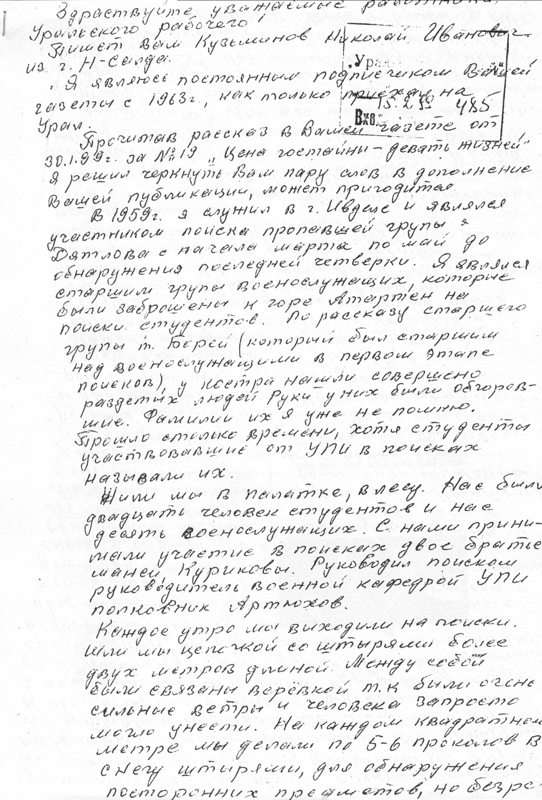 Здраствуйте, уважаемые работники
Уральского рабочего!
Пишет Вам Кузьминов Николай Иванович
из г. Н-Салда.
Я являюсь постоянным подписчиком Вашей
газеты с 1963г, как только приехал на
Урал.
Ура
15.2.99 485
Вх в.
Прочитав рассказ в Вашей газете от
30.1.99г. за №19 „Цена гостайны - девять жизней"
я решил черкнуть Вам пару слов в дополнение
Вашей публикации, может пригодится
В 1959г. я служил в г. Ивделе и являлся
участником поиска пропавшей групы
Дятлова с начала марта по май до
обнаружения последней четверки. Я являлся
старшим групы военослужащих, которые
были заброшены к горе Атартен на
поиски студентов. По рассказу старшего
групы т. Борей (который был старшим
над военослужащими в первом этапе
поисков), у костра нашли совершено
раздетых людей руки у них были обгорев-
шие. Фамилии их я уже не помню.
Прошло столько времени, хотя студенты
участвовавшие от УПИ в поисках
называли их.
Жили мы в палатке, в лесу. Нас было
двадцать человек студентов и нас
десять военослужащих. С нами прини-
мали участие в поисках двое братьев
манси Куриковы. Руководил поиском
руководитель военной кафедрой УПИ
полковник Артюхов.
Каждое утро мы выходили на поиски.
шли мы цепочкой со штырями более
двух метров длиной. Между собой
были связаны верёвкой т.к были очень
сильные ветры и человека запросто
могло унести. На каждом квадратном
метре мы делали по 5-6 проколов в
снегу штырями, для обнаружения
посторонних предметов, но безре-